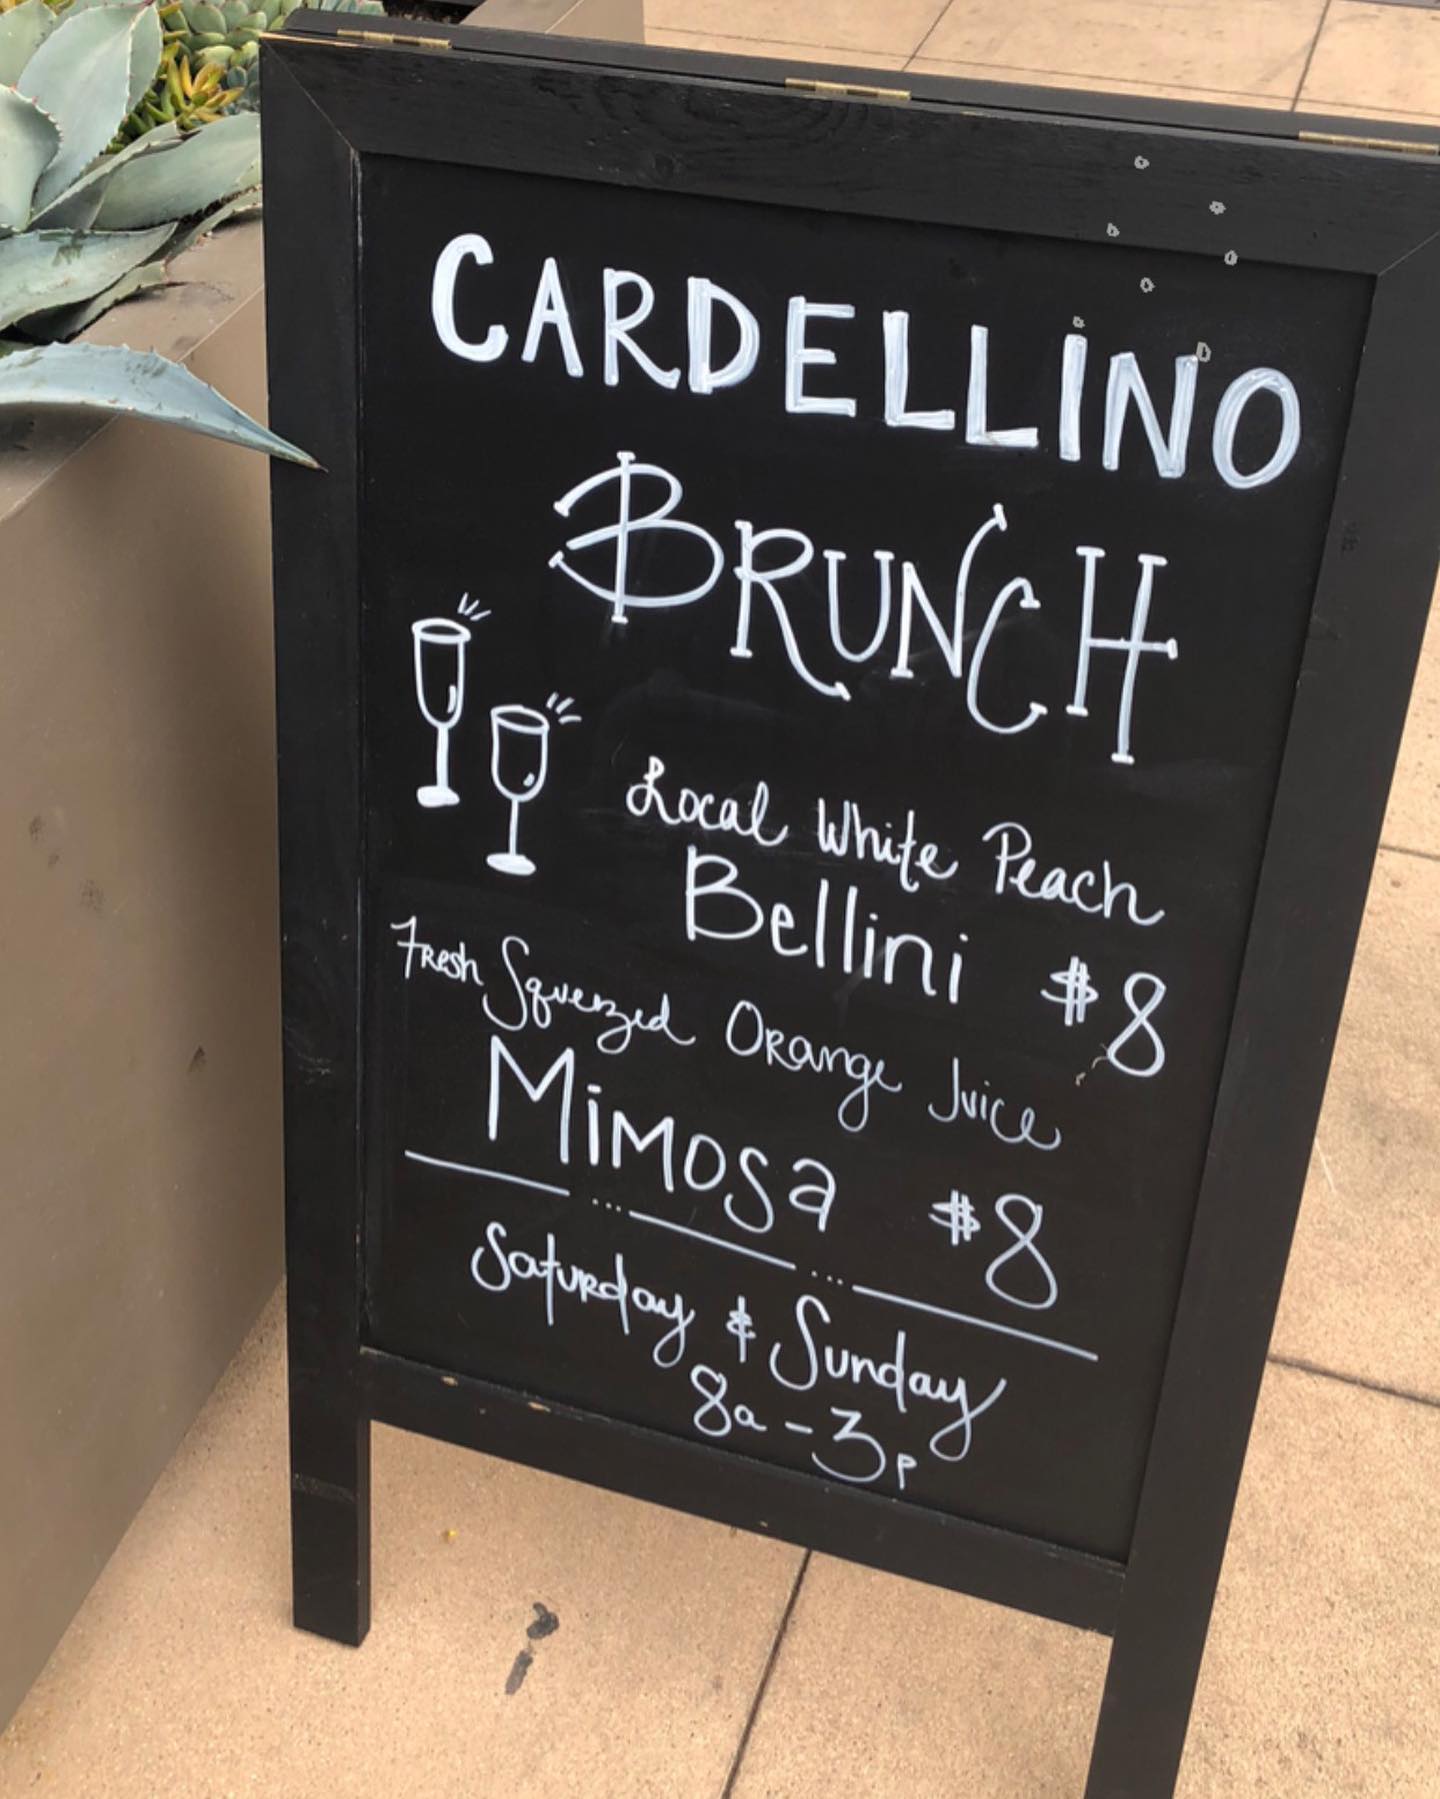 CARDELLINO
BRUNCH
Local White Peach
Bellini $8
Fresh Squeezed Orange Juice
Mimosa $8
Saturday & Sunday
8a - 3p